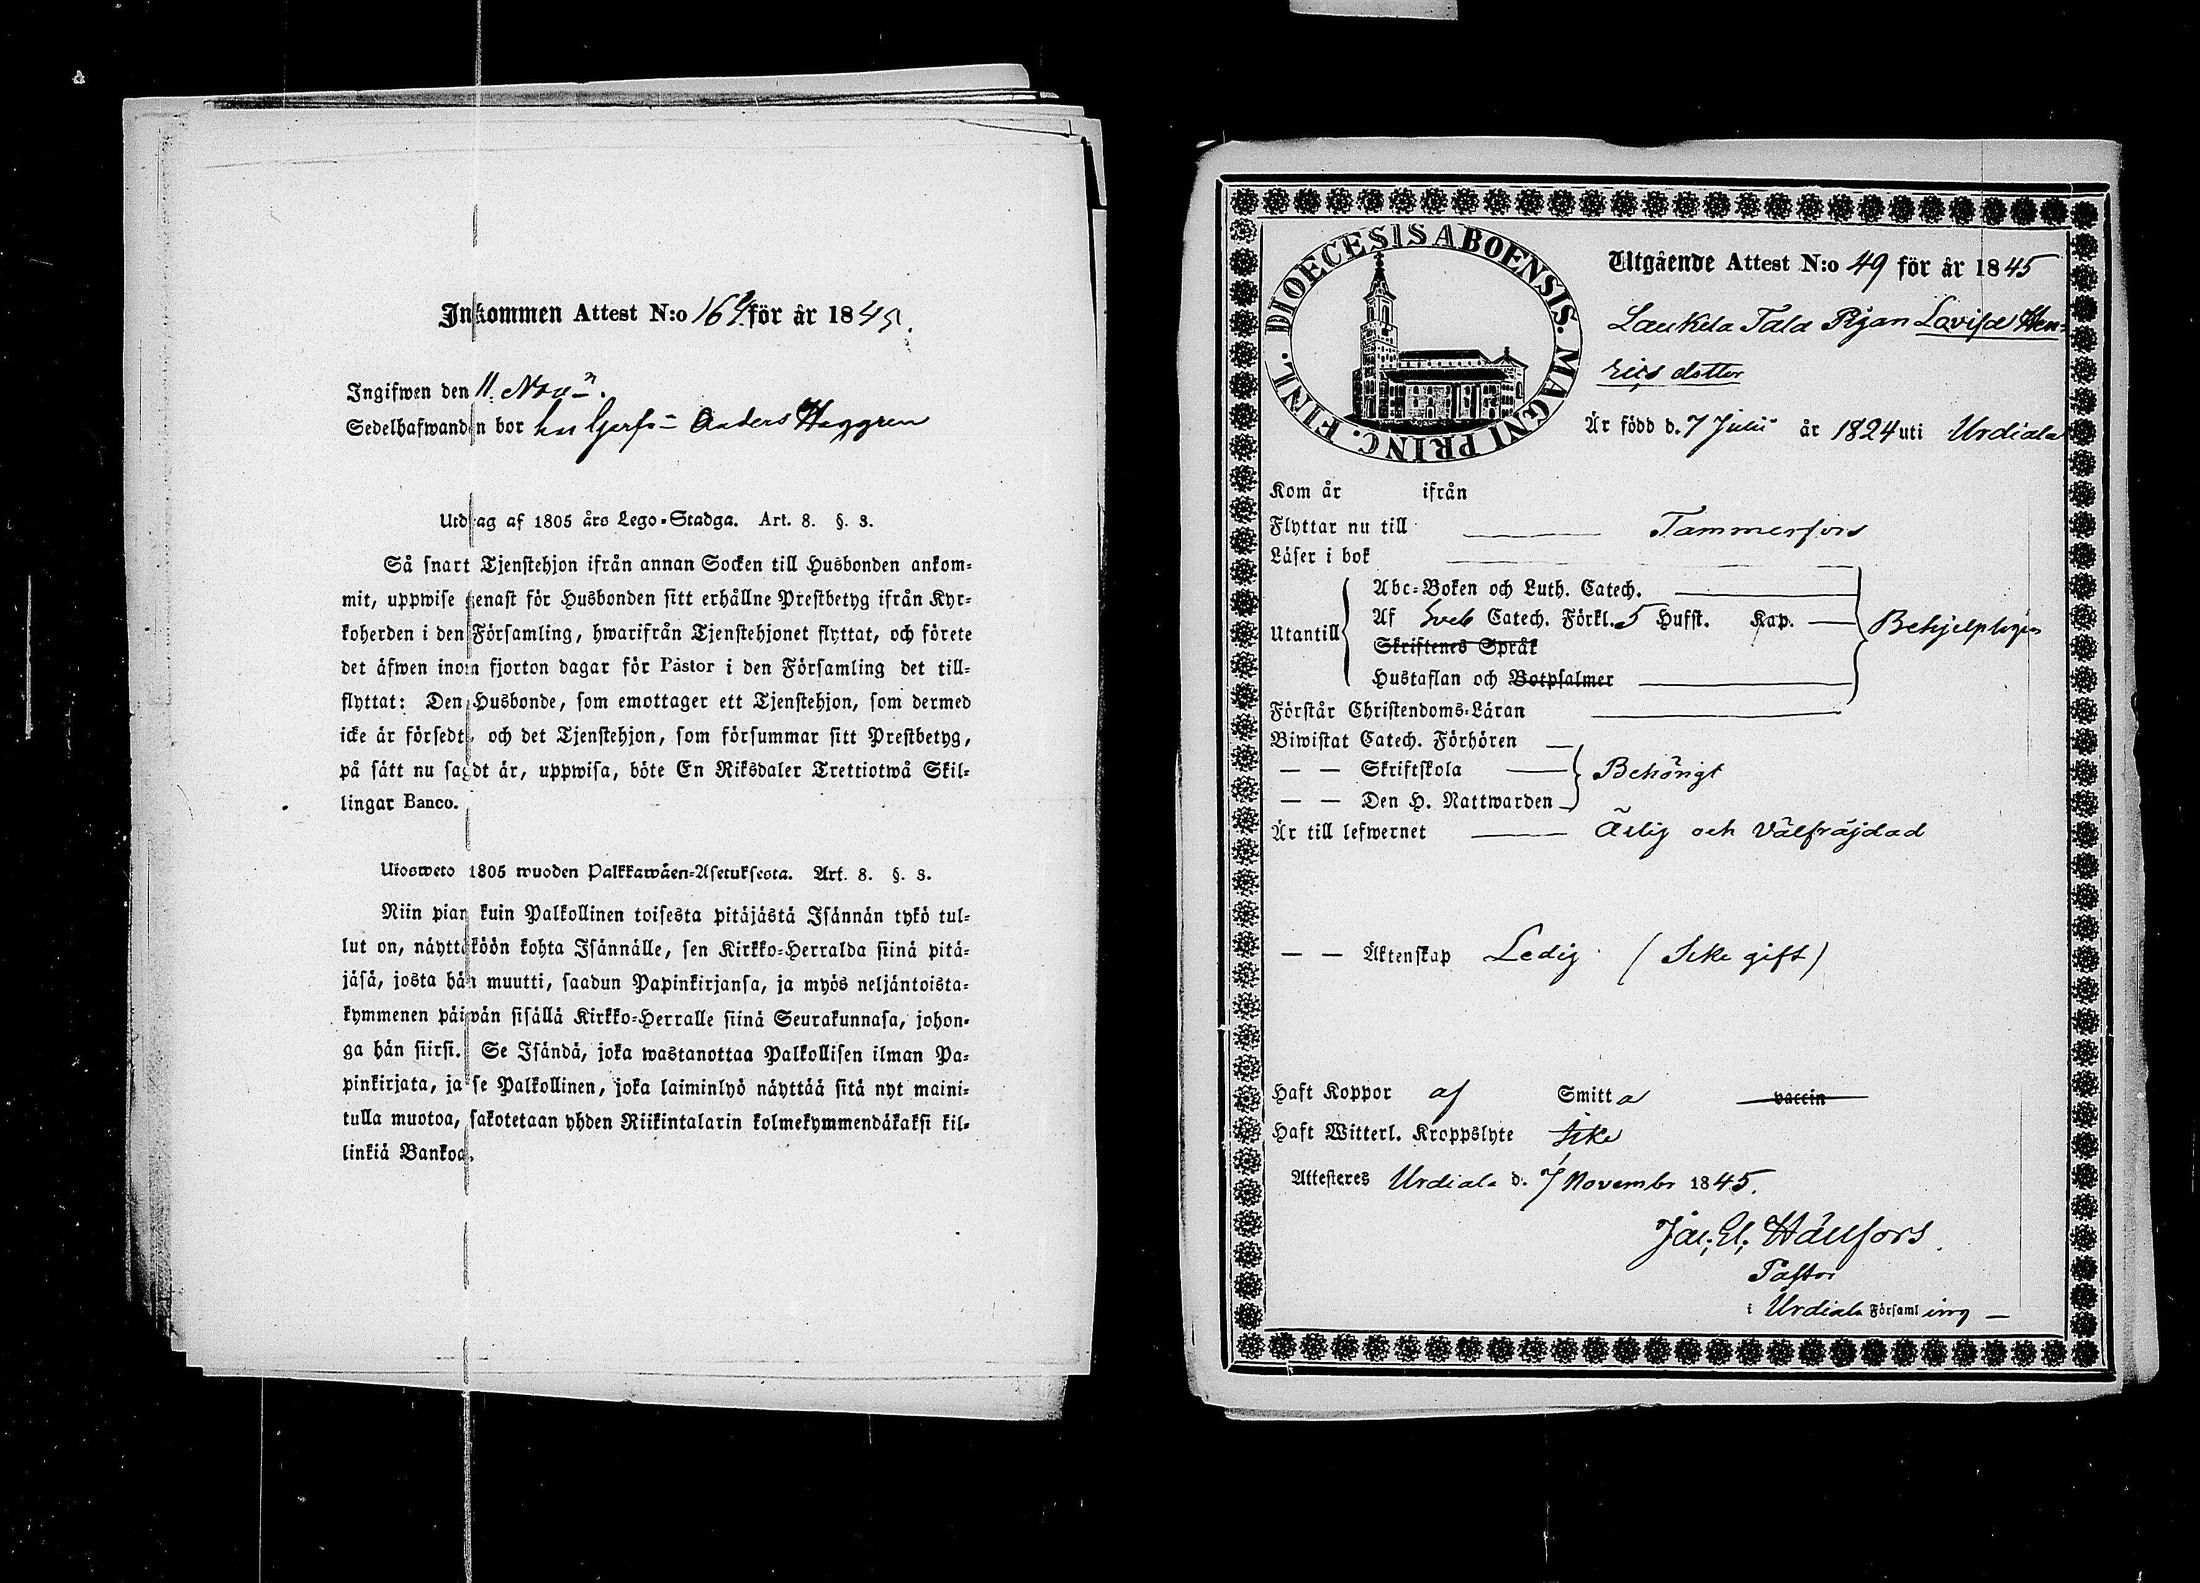 Inkommen Attest N:o 164 för år 1845.
Ingifwen den 11. Nov
Sedelhafwanden bor hos Anders Haggren
Utdrag af 1805 års Lego-Stadga. Art. 8. §. 3.
Så snart Tjenstehjon ifrån annan Socken till Husbonden ankom-
mit, uppwise genast för Husbonden sitt erhållne Prestbetyg ifrån Kyr-
koherden i den Församling, hwarifrån Tjenstehjonet flyttat, och förete
det äfwen inom fjorton dagar för Pastor i den Församling det till-
flyttat: Den Husbonde, som emottager ett Tjenstehjon, som dermed
icke är försedt, och det Tjenstehjon, som försummar sitt Prestbetyg,
på sätt nu sagdt är, uppwisa, böte En Riksdaler Trettiotwå Skil-
lingar Banco.
Ulosweto 1805 wuoden Palkkawäen-Asetuksesta. Art. 8. §. 3.
Niin pian kuin Palkollinen toisesta pitäjästä Isännän tykö tul-
lut on, näyttäköön kohta Isännälle, sen Kirkko-Herralda siinä pitä-
jäsä, josta hän muutti, saadun Papinkirjansa, ja myös neljäntoista-
kymmenen päiwän sisällä Kirkko-Herralle siinä Seurakunnasa, johon-
ga hän siirsi. Se Isändä, joka wastanottaa Palkollisen ilman Pa-
pinkirjata, ja se Palkollinen, joka laiminlyö näyttää sitä nyt maini-
tulla muotoa, sakotetaan yhden Riikintalarin kolmekymmendäkaksi kil-
linkiä Bankoa.
DIOECESIS ABOENSIS. MAGNI PRINC. FINL.
Utgående Attest N:o 49 för år 1845
Laukela Tala Pigan Lovisa Hen-
rics dotter
Är född d. 7 Julii år 1824 uti Urdiala
Kom år ifrån
Flyttar nu till Tammerfors
Läser i bok
Utantill
Abc-Boken och Luth. Catech.
Af Sveb Catech. Förkl. 5 Hufst. Kap.
Skriftenes Språk
Hustaflan och Botpsalmer
Behjelpligen
Förstår Christendoms-Läran
Biwistat Catech. Förhören
— — Skriftskola
— — Den H. Nattwarden
Behörigt
Är till lefwernet Ärlig och Välfräjdad
— — Äktenskap Ledig (Icke gift)
Haft Koppor af Smitta vaccin
Haft Witterl. Kroppslyte Icke
Attesteres Urdiala d. 7 November 1845.
Jac. El. Hällfors.
Pastor
i Urdiala Församling —